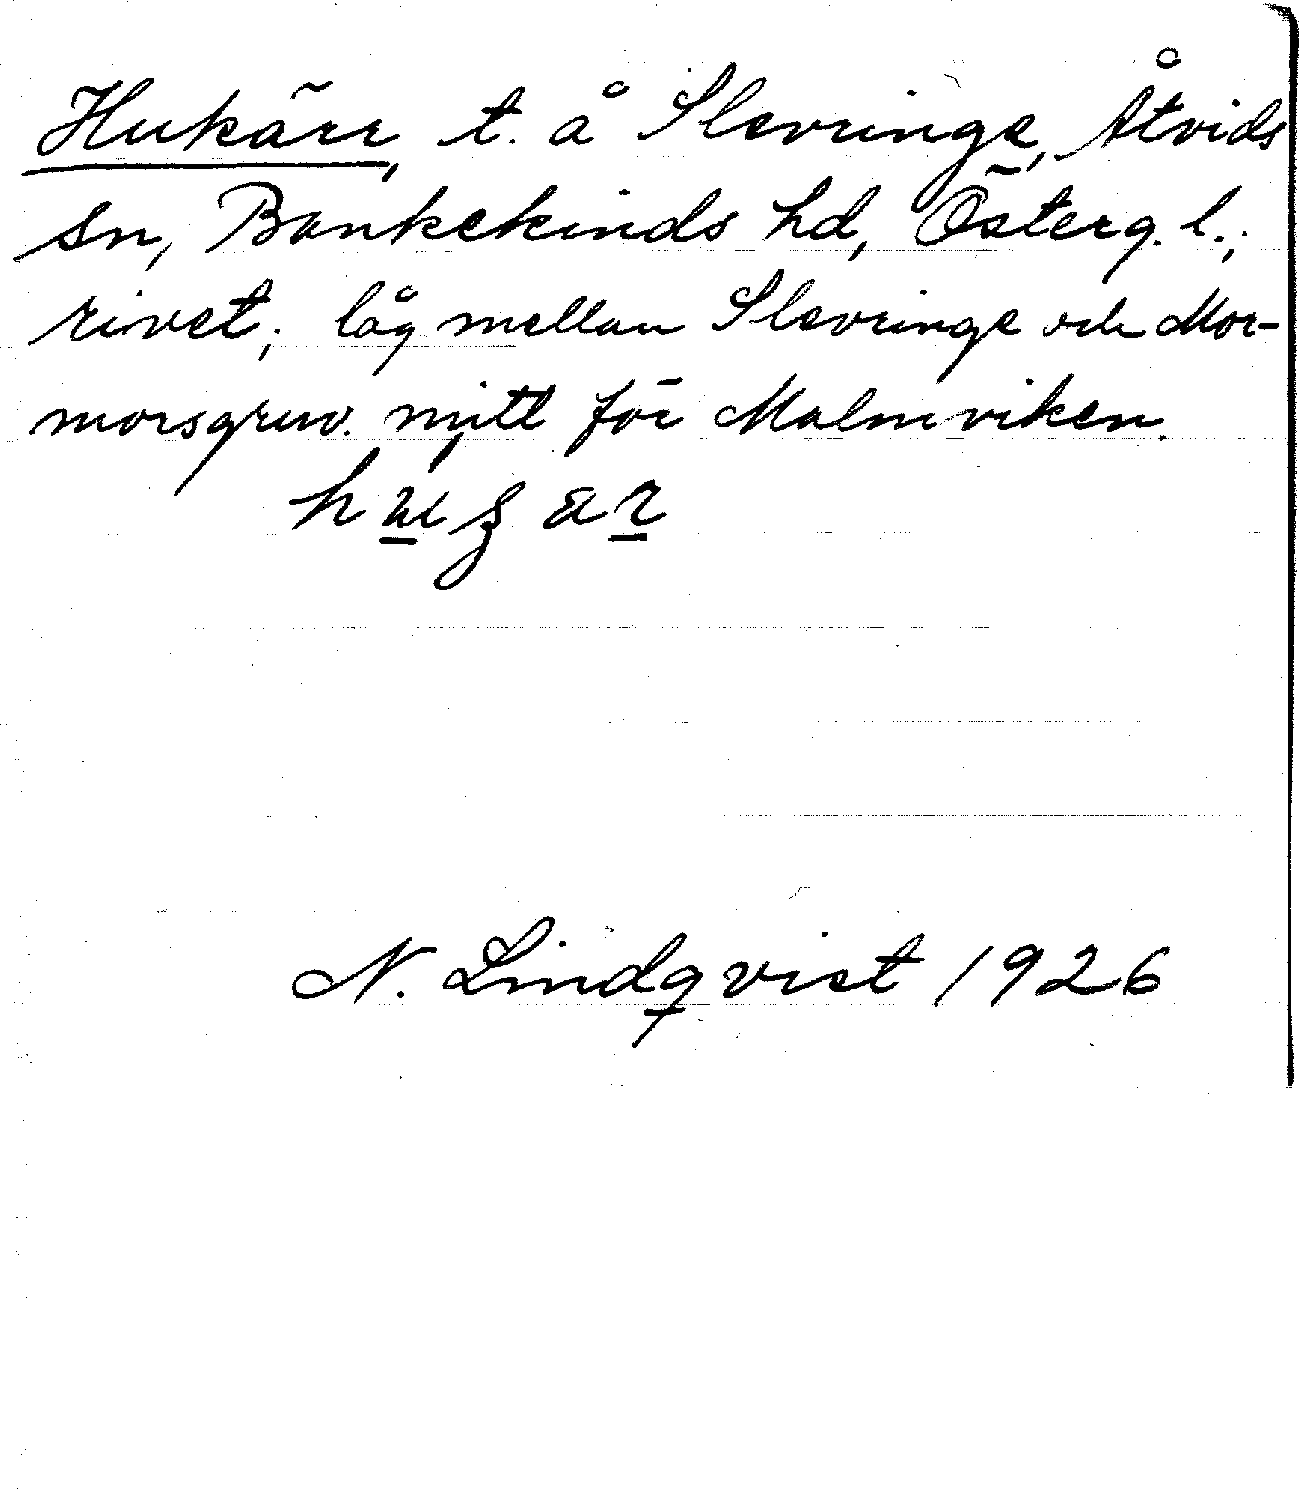 Hukärr, t. å Slevringe, Åtvids
sn, Bankekinds hd, Österg. l.;
rivet; låg mellan Slevringe och Mor-
morsgruv. mitt för Malmviken.
N. Lindqvist 1926